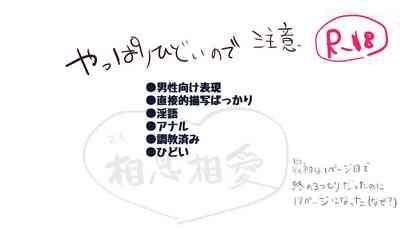 やっぱりひどいので注意
R-18
●男性向け表現
●直接的描写ばっかり
●淫語
●アナル
●調教済み
●ひどい
相思相愛
1ページ目で
終わるつもりだったのに
17ページになった(なぜ?)